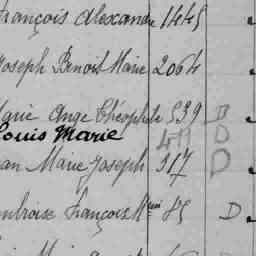 François Alexandre 1445
Joseph Benoit Marie 2064
Marie Ange Théophile 539 D
Louis Marie 411 D
Jean Marie Joseph 317 D
Ambroise François Mie 85 D